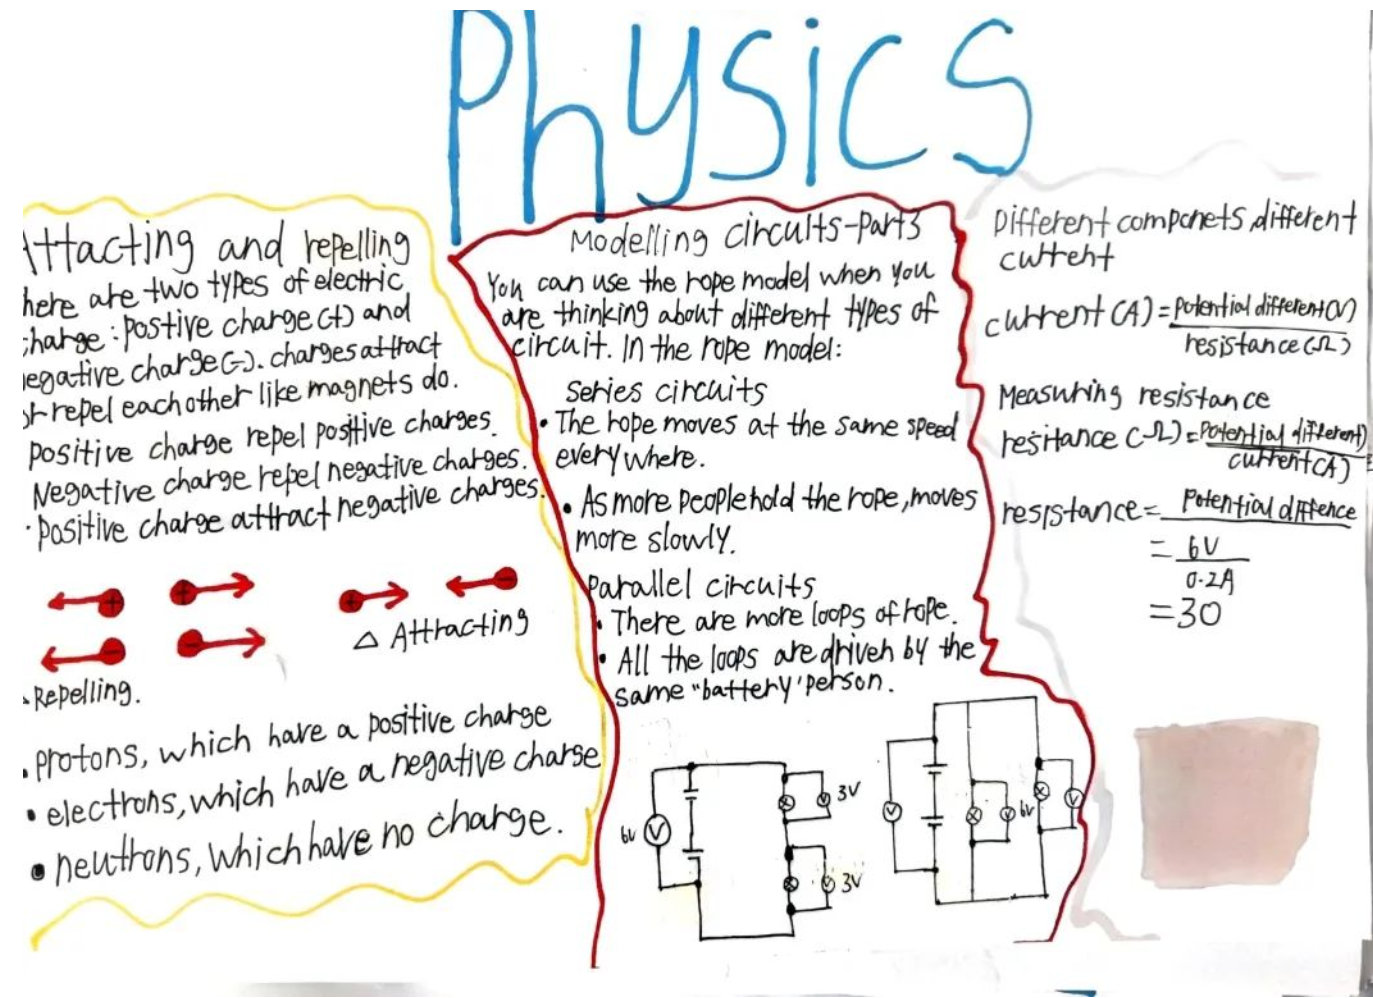 Physics
Attacting and repelling
here are two types of electric
charge: postive charge (+) and
egative charge (-). charges attract
or repel each other like magnets do.
Positive charge repel positive charges.
Negative charge repel negative charges.
· Positive charge attract negative charges.
△ Attracting
Repelling.
· protons, which have a positive charge
• electrons, which have a negative charge
• neutrons, which have no charge.
Modelling circuits-part3
You can use the rope model when you
are thinking about different types of
circuit. In the rope model:
Series circuits
• The rope moves at the same speed
everywhere.
• As more people hold the rope, moves
more slowly.
Parallel circuits
• There are more loops of rope.
• All the loops are driven by the
same "battery" person.
6V
V
V
3V
V
3V
V
V
6V
V
Different compcnets, different
current
current (A) = potential different (V)
resistance (Ω)
Measuring resistance
resitance (Ω) = potential different)
current (A)
resistance = Potential diffence
= 6V
0.2A
= 30